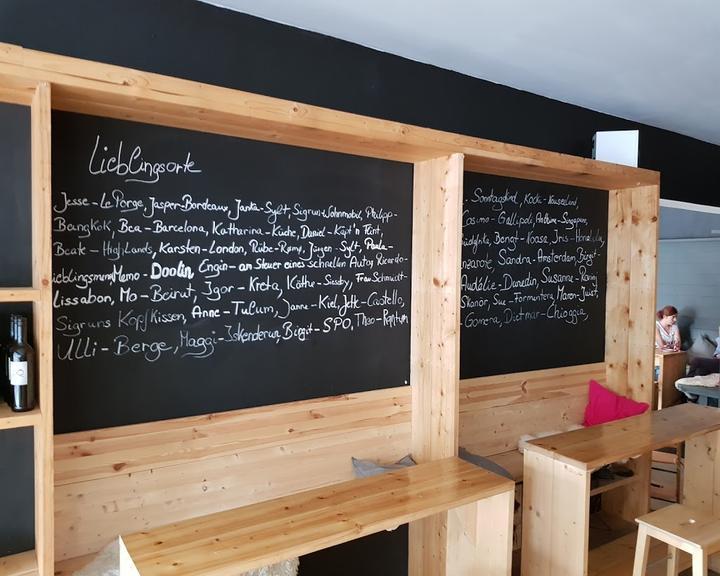 Lieblingsorte
Jesse-Le Porge, Jasper-Bordeaux, Janka-Sylt, Sigrun-Wohnmobil, Philipp-
Bangkok, Bea-Barcelona, Katharina-Küche, Daniel-Käpt'n Flint,
Beate-Highlands, Karsten-London, Rübe-Rømø, Jürgen-Sylt, Paula-
Memo-Doolin Engin-am Steuer eines schnellen Autos, Ricardo-
Lissabon, Mo-Beirut, Igor-Kreta, Käthe-Sæby, Frau Schmidt-
Sigruns Kopf/Kissen, Anne-Tulum, Janne-Kiel, Jette-Castello,
Ulli-Berge, Maggi-Iskenderun, Birgit-SPO, Theo-
Sonntagskind, Kocki-
Cosimo-Gallipoli,
Bengt-Oase, Iris-Honolulu,
Sandra-Amsterdam, Birgit-
Dunedin, Susanne-
Skanör, Sue-Formentera, Maron-Juist,
Gomera, Dietmar-Chioggia,